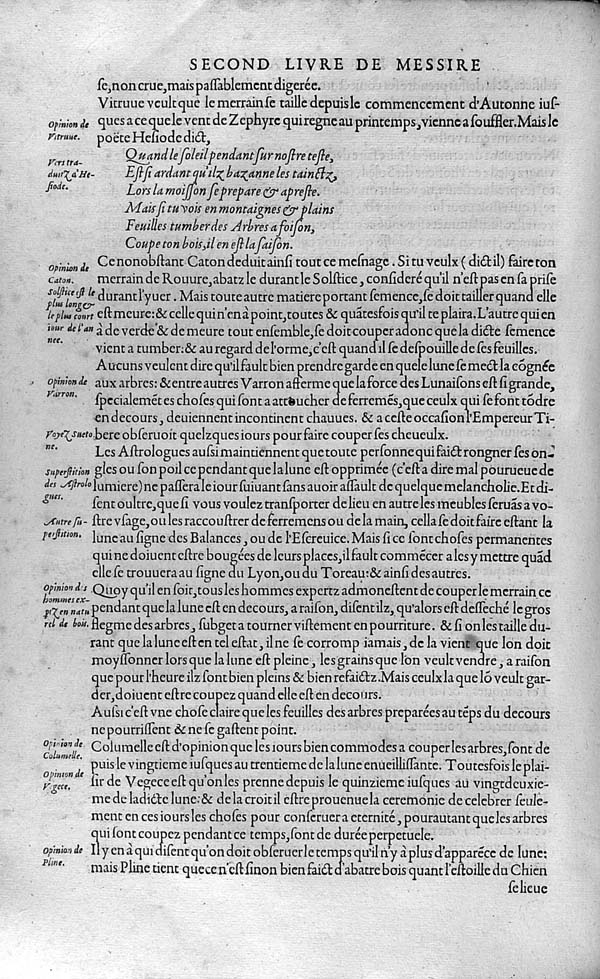 SECOND LIVRE DE MESSIRE
ſe, non crue, mais paſſablement digerée.
Vitruue veult que le merrain ſe taille depuis le commencement d'Autonne iuſ-
ques a ce que le vent de Zephyre qui regne au printemps, vienne a ſouffler. Mais le
poëte Heſiode dict,
Opinion de
Vitruue.
Quand le ſoleil pendant ſur noſtre teſte,
Eſt ſi ardant qu'ilz bazanne les tainctz,
Lors la moiſſon ſe prepare & apreſte.
Mais ſi tu vois en montaignes & plains
Feuilles tumber des Arbres a foiſon,
Coupe ton bois, il en eſt la ſaiſon.
Vers tra-
duitz d'He-
ſiode.
Ce nonobſtant Caton deduit ainſi tout ce meſnage. Si tu veulx (dict il) faire ton
merrain de Rouure, abatz le durant le Solſtice, conſideré qu'il n'eſt pas en ſa priſe
durant l'yuer. Mais toute autre matiere portant ſemence, ſe doit tailler quand elle
eſt meure: & celle qui n'en à point, toutes & quãtesfois qu'il te plaira. L'autre qui en
à de verde & de meure tout enſemble, ſe doit couper adonc que la dicte ſemence
vient a tumber: & au regard de l'orme, c'eſt quand il ſe deſpouille de ſes feuilles.
Opinion de
Caton.
Solſtice eſt le
plus long &
le plus court
iour de l'an
nee.
Aucuns veulent dire qu'il fault bien prendre garde en quele lune ſe mect la cõgnée
aux arbres: & entre autres Varron afferme que la force des Lunaiſons eſt ſi grande,
ſpecialemẽt es choſes qui ſont a attoucher de ferremẽs, que ceulx qui ſe font tõdre
en decours, deuiennent incontinent chauues. & a ceſte occaſion l'Empereur Ti-
bere obſeruoit quelzques iours pour faire couper ſes cheueulx.
Opinion de
Varron.
Voyez Sueto
ne.
Les Aſtrologues auſsi maintiennent que toute perſonne qui faict rongner ſes on-
gles ou ſon poil ce pendant que la lune eſt opprimée (c'eſt a dire mal pourueue de
lumiere) ne paſſera le iour ſuiuant ſans auoir aſſault de quelque melancholie. Et di-
ſent oultre, que ſi vous voulez tranſporter de lieu en autre les meubles ſeruãs a vo-
ſtre vſage, ou les raccouſtrer de ferremens ou de la main, cella ſe doit faire eſtant la
lune au ſigne des Balances, ou de l'Eſcreuice. Mais ſi ce ſont choſes permanentes
qui ne doiuent eſtre bougées de leurs places, il fault commẽcer a les y mettre quãd
elle ſe trouuera au ſigne du Lyon, ou du Toreau: & ainſi des autres.
Superſtition
des Aſtrolo
gues.
Autre ſu-
perſtition.
Quoy qu'il en ſoir, tous les hommes expertz admoneſtent de couper le merrain ce
pendant que la lune eſt en decours, a raiſon, diſent ilz, qu'alors eſt deſſeché le gros
flegme des arbres, ſubget a tourner viſtement en pourriture. & ſi on les taille du-
rant que la lune eſt en tel eſtat, il ne ſe corromp iamais, de la vient que lon doit
moyſſonner lors que la lune eſt pleine, les grains que lon veult vendre, a raiſon
que pour l'heure ilz ſont bien pleins & bien refaictz. Mais ceulx la que lõ veult gar-
der, doiuent eſtre coupez quand elle eſt en decours.
Opinion des
hommes ex-
ptz en natu
rel de bois.
Auſsi c'eſt vne choſe claire que les feuilles des arbres preparées au tẽps du decours
ne pourriſſent & ne ſe gaſtent point.
Columelle eſt d'opinion que les iours bien commodes a couper les arbres, ſont de
puis le vingtieme iuſques au trentieme de la lune enueilliſſante. Toutesfois le plai-
ſir de Vegece eſt qu'on les prenne depuis le quinzieme iuſques au vingtdeuxie-
me de ladicte lune: & de la croit il eſtre prouenue la ceremonie de celebrer ſeule-
ment en ces iours les choſes pour conſeruer a eternité, pourautant que les arbres
qui ſont coupez pendant ce temps, ſont de durée perpetuele.
Opinion de
Columelle.
Opinion de
Vegece.
Il y en à qui diſent qu'on doit obſeruer le temps qu'il n'y à plus d'apparẽce de lune:
mais Pline tient que ce n'eſt ſinon bien faict d'abatre bois quant l'eſtoille du Chien
Opinion de
Pline.
ſe lieue